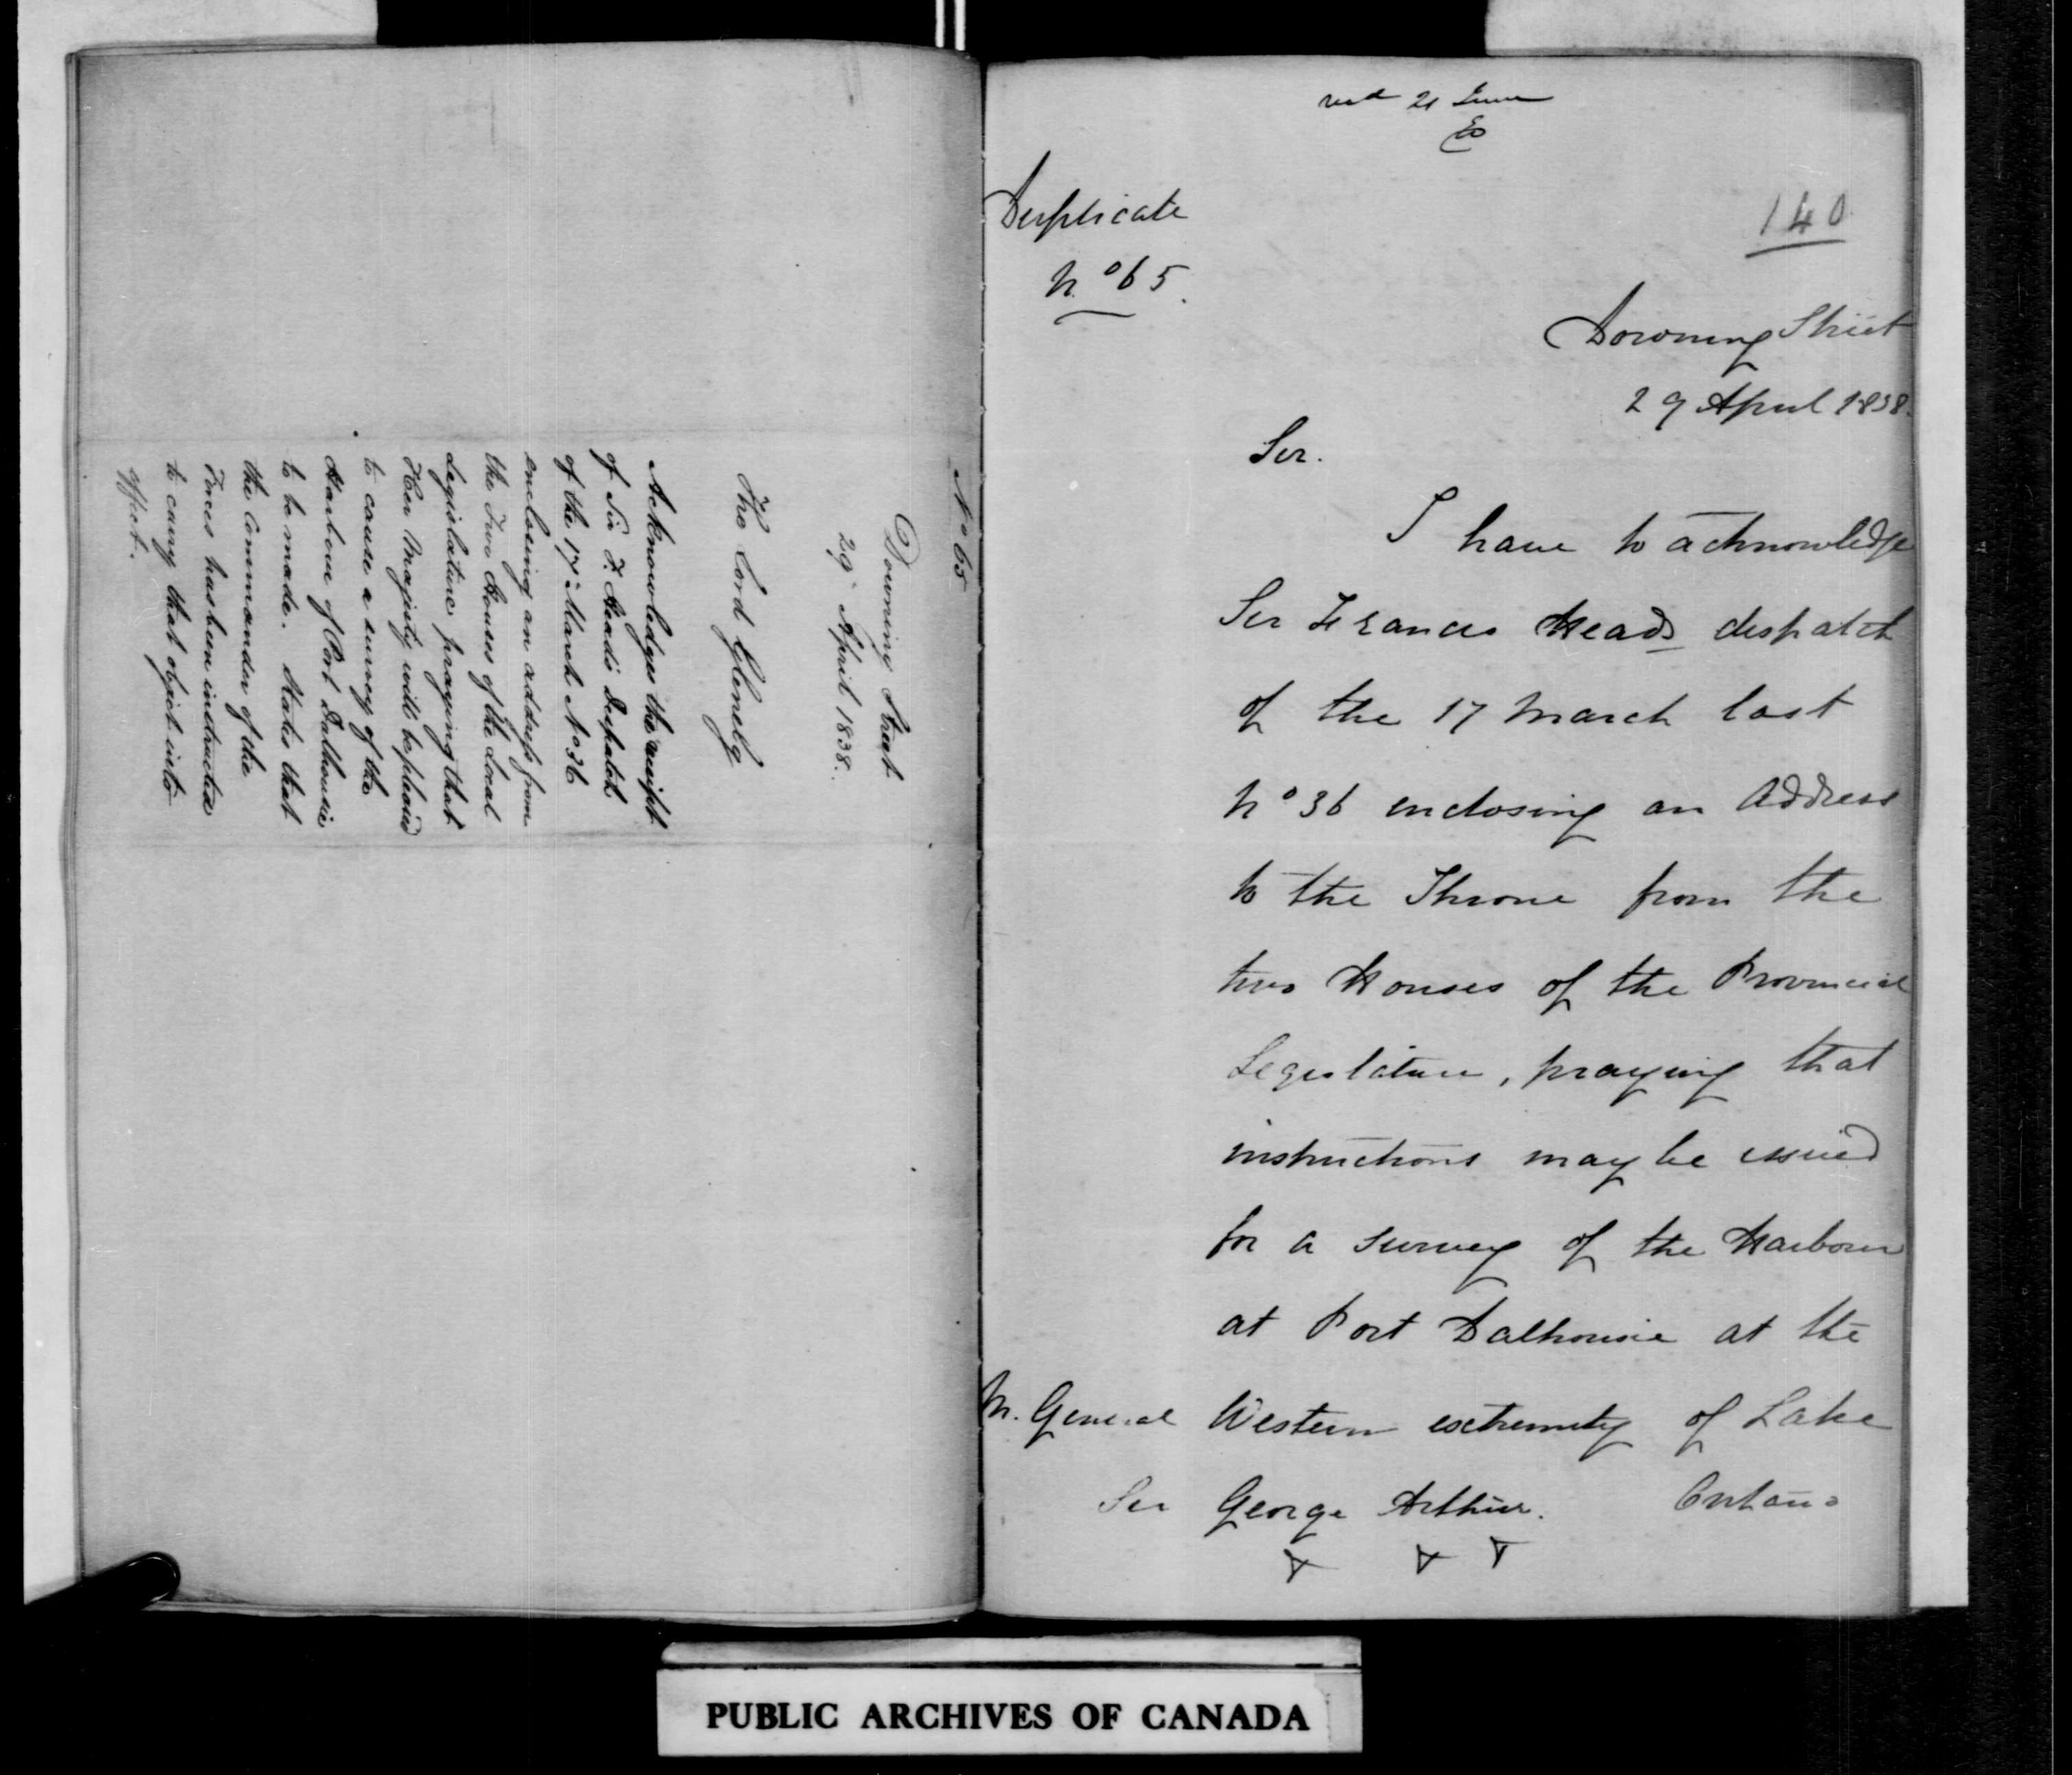 No 65
Downing Street
29th April 1838.
The Lord Glenelg
Acknowledges the receipt
of Sir F. Head's Despatch
of the 17th March No 36
enclosing an address from
the Two Houses of the Local
Legislature praying that
Her Majesty will be pleased
to cause a survey of the
Harbour of Port Dalhousie
to be made. States that
the Commander of the
Forces has been instructed
to carry that object into
effect.
recd 21 June
Duplicate
140
No 65.
Downing Street
29 April 1838.
Sir.
I have to acknowledge
Sir Francis Heads dispatch
of the 17 March last
No 36 enclosing an Address
to the Throne from the
two Houses of the Provincial
Legislature, praying that
instructions may be issued
for a survey of the Harbour
at Port Dalhousie at the
Western extremity of Lake
Ontario
M. General
Sir George Arthur.
PUBLIC ARCHIVES OF CANADA